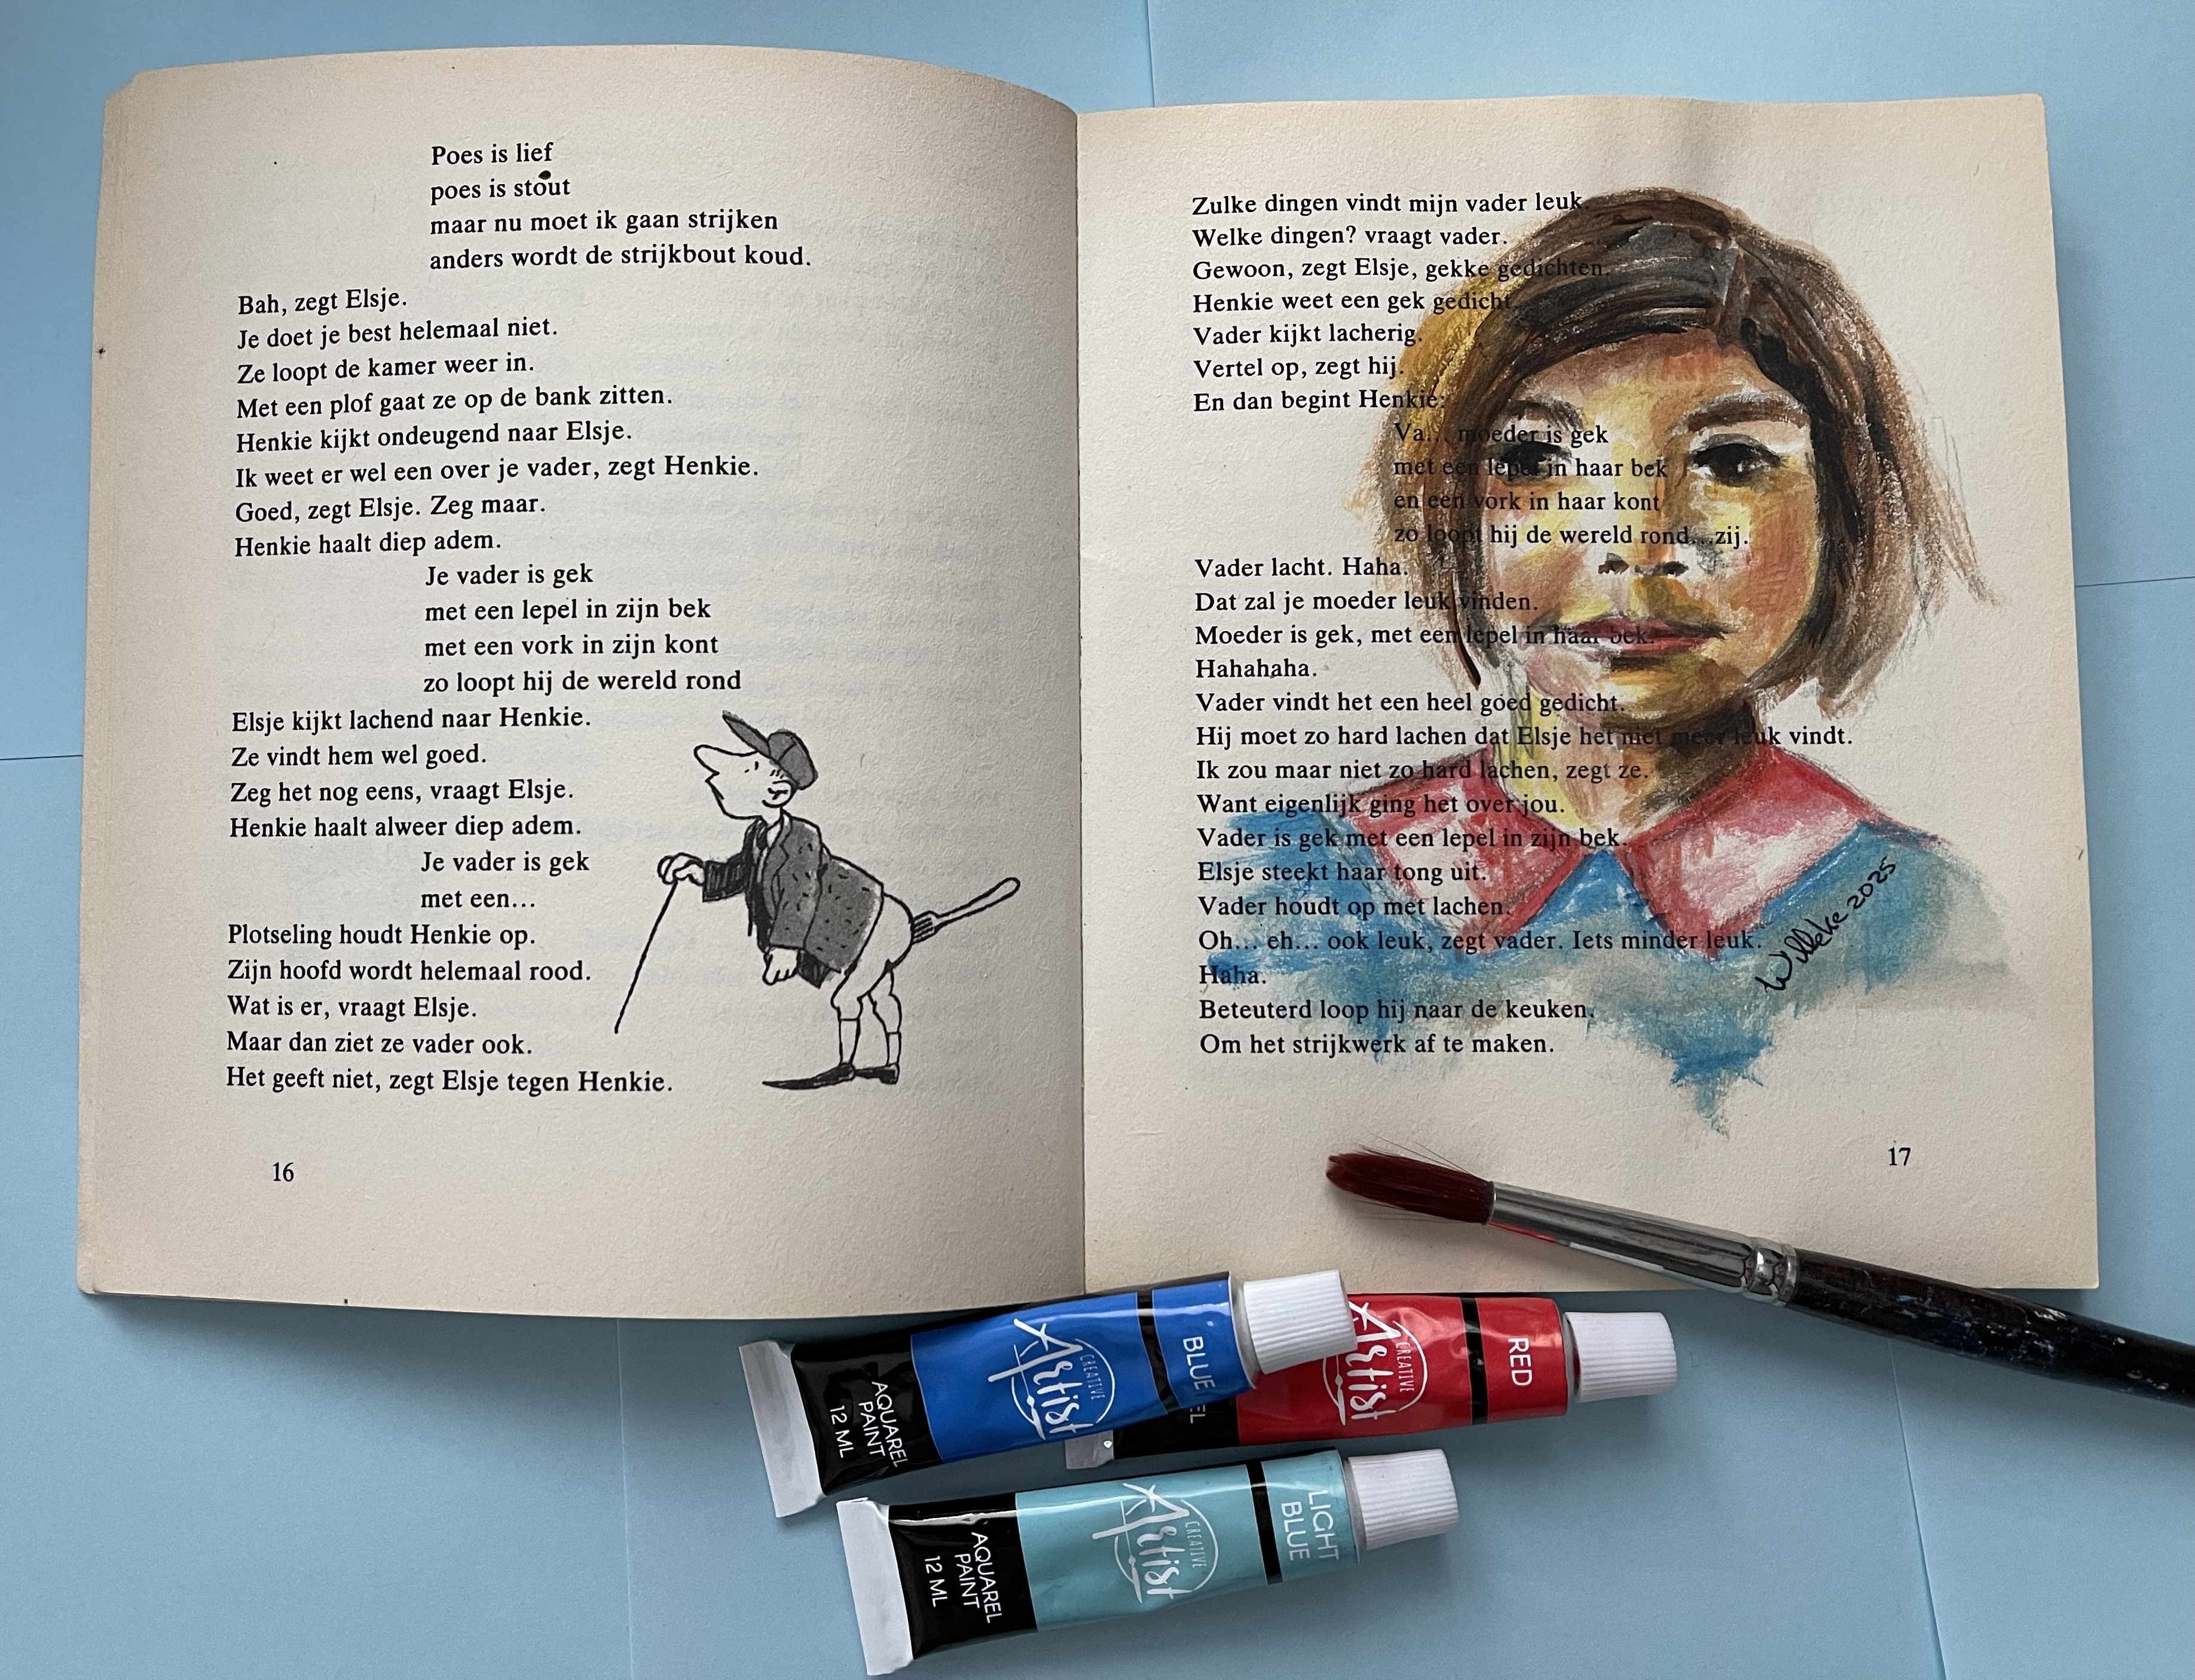 Poes is lief
poes is stout
maar nu moet ik gaan strijken
anders wordt de strijkbout koud.
Bah, zegt Elsje.
Je doet je best helemaal niet.
Ze loopt de kamer weer in.
Met een plof gaat ze op de bank zitten.
Henkie kijkt ondeugend naar Elsje.
Ik weet er wel een over je vader, zegt Henkie.
Goed, zegt Elsje. Zeg maar.
Henkie haalt diep adem.
Je vader is gek
met een lepel in zijn bek
met een vork in zijn kont
zo loopt hij de wereld rond
Elsje kijkt lachend naar Henkie.
Ze vindt hem wel goed.
Zeg het nog eens, vraagt Elsje.
Henkie haalt alweer diep adem.
Je vader is gek
met een...
Plotseling houdt Henkie op.
Zijn hoofd wordt helemaal rood.
Wat is er, vraagt Elsje.
Maar dan ziet ze vader ook.
Het geeft niet, zegt Elsje tegen Henkie.
16
Zulke dingen vindt mijn vader leuk
Welke dingen? vraagt vader.
Gewoon, zegt Elsje, gekke gedichten.
Henkie weet een gek gedicht.
Vader kijkt lacherig.
Vertel op, zegt hij.
En dan begint Henkie:
Va... moeder is gek
met een lepel in haar bek
en een vork in haar kont
zo loopt hij de wereld rond...zij.
Vader lacht. Haha.
Dat zal je moeder leuk vinden.
Moeder is gek, met een lepel in haar bek.
Hahahaha.
Vader vindt het een heel goed gedicht.
Hij moet zo hard lachen dat Elsje het niet meer leuk vindt.
Ik zou maar niet zo hard lachen, zegt ze.
Want eigenlijk ging het over jou.
Vader is gek met een lepel in zijn bek.
Elsje steekt haar tong uit.
Vader houdt op met lachen.
Oh... eh... ook leuk, zegt vader. Iets minder leuk.
Haha.
Beteuterd loop hij naar de keuken.
Om het strijkwerk af te maken.
17
Willeke 2025
CREATIVE
Artist
BLUE
AQUAREL
PAINT
12 ML
CREATIVE
Artist
RED
EL
CREATIVE
Artist
LIGHT
BLUE
AQUAREL
PAINT
12 ML